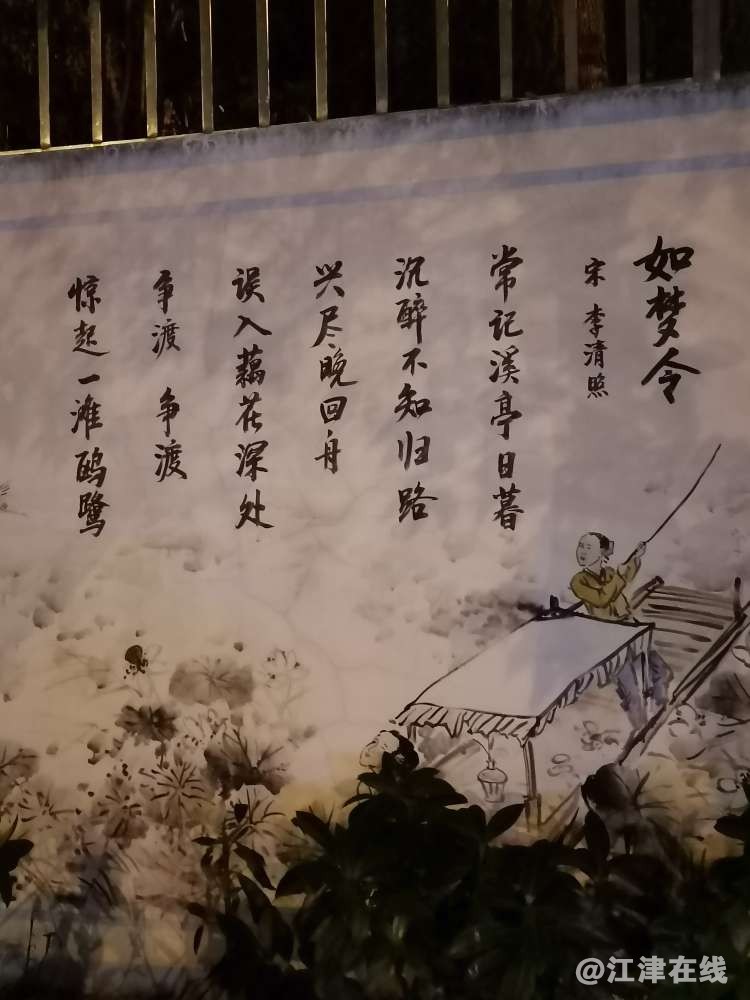 如梦令
宋 李清照
常记溪亭日暮
沉醉不知归路
兴尽晚回舟
误入藕花深处
争渡 争渡
惊起一滩鸥鹭
@江津在线